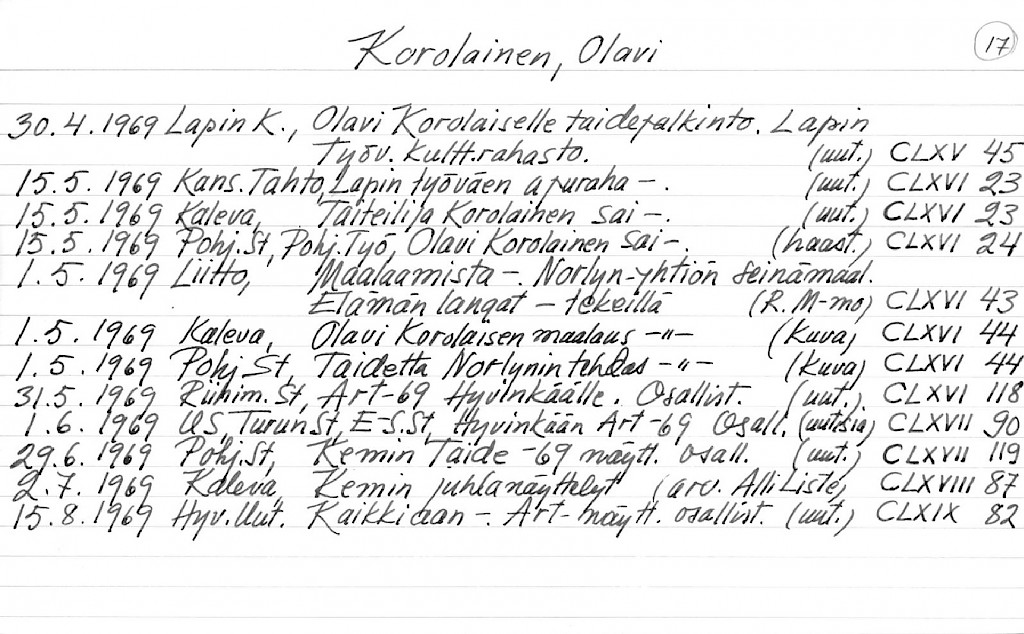 17
Korolainen, Olavi
30.4.1969 Lapin K., Olavi Korolaiselle taidepalkinto. Lapin
Työv. kultt.rahasto. (uut.) CLXV 45
15.5.1969 Kans.Tahto, Lapin työväen apuraha –. (uut.) CLXVI 23
15.5.1969 Kaleva, Taiteilija Korolainen sai –. (uut.) CLXVI 23
15.5.1969 Pohj.St, Pohj.Työ, Olavi Korolainen sai –. (haast.) CLXVI 24
1.5.1969 Liitto, Maalaamista –. Norlyn-yhtiön seinämaal.
Elämän langat – tekeillä (R.M-mo) CLXVI 43
1.5.1969 Kaleva, Olavi Korolaisen maalaus –"– (Kuva) CLXVI 44
1.5.1969 Pohj St, Taidetta Norlynin tehdas –"– (Kuva) CLXVI 44
31.5.1969 Riihim.St, Art-69 Hyvinkäälle. Osallist. (uut.) CLXVI 118
1.6.1969 US, TurunSt, E-S.St, Hyvinkään Art-69 Osall. (uutisia) CLXVII 90
29.6.1969 Pohj.St, Kemin Taide-69 näytt. osall. (uut.) CLXVII 119
2.7.1969 Kaleva, Kemin juhlanäyttelyt (arv. Alli Liste) CLXVIII 87
15.8.1969 Hyv.Uut. Kaikkiaan –. Art-näytt. osallist. (uut.) CLXIX 82